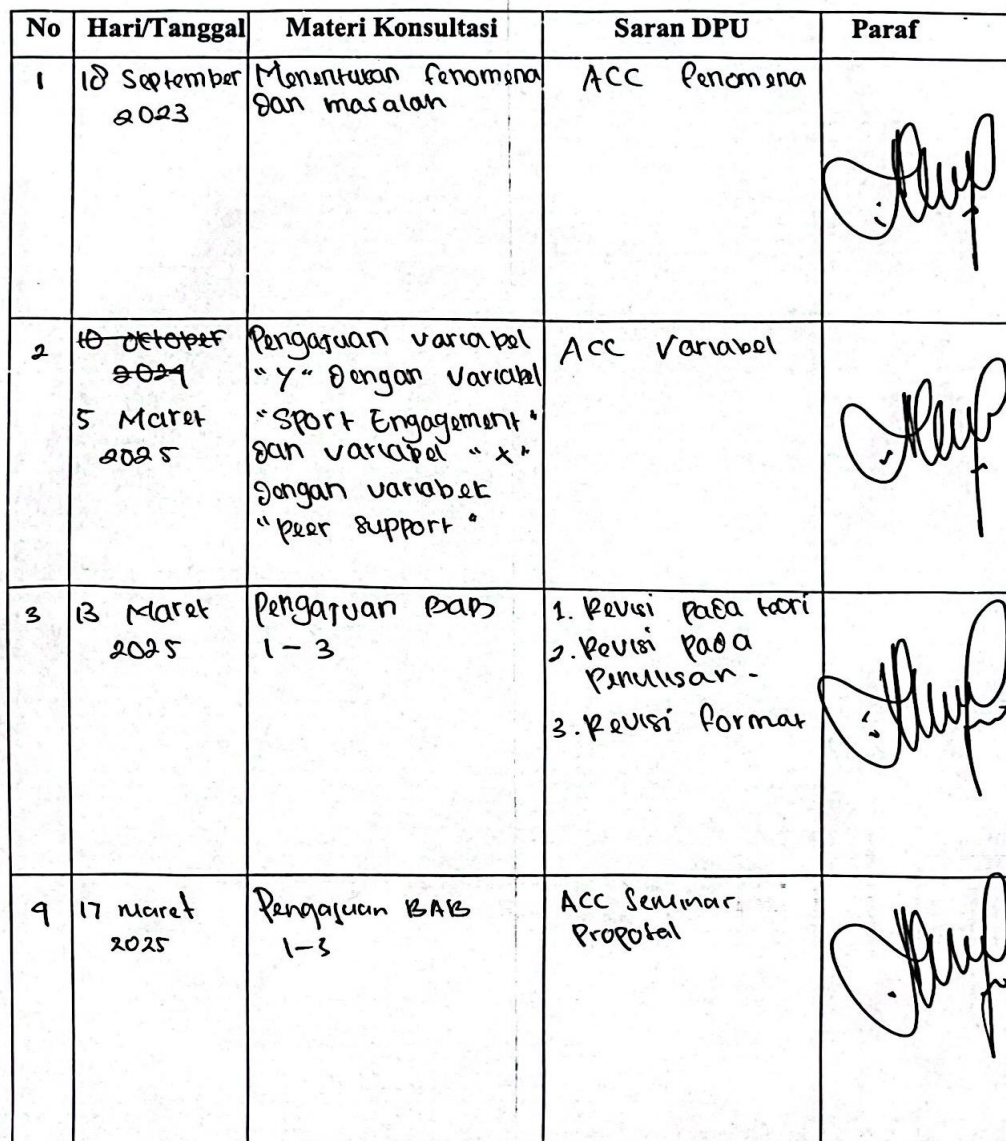 No Hari/Tanggal Materi Konsultasi Saran DPU Paraf
1 18 September 2023 Menentukan fenomena dan masalah ACC Fenomena
2 10 Oktober 2024
5 Maret 2025
Pengajuan variabel
"Y" dengan variabel
"Sport Engagement"
dan variabel "X"
dengan variabel
"peer support"
ACC Variabel
3 13 Maret
2025
Pengajuan BAB
1-3
1. Revisi pada teori
2. Revisi pada
Penulisan.
3. Revisi format
4 17 Maret
2025
Pengajuan BAB
1-3
ACC Seminar
Proposal